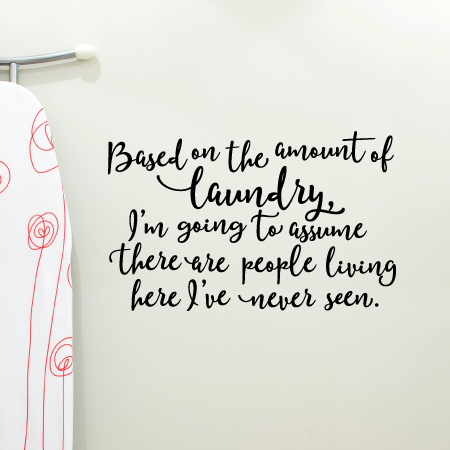 Based on the amount of
laundry,
I'm going to assume
there are people living
here I've never seen.